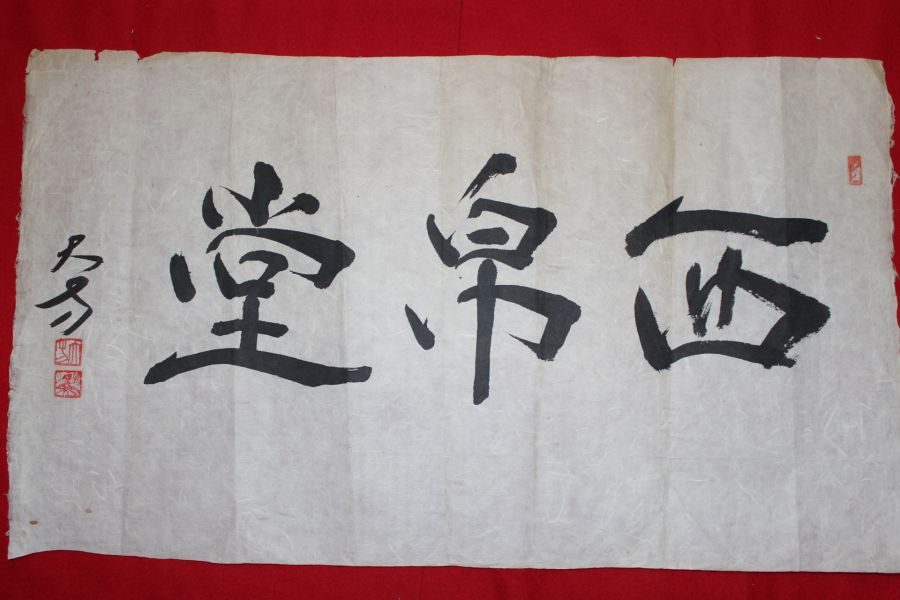 西帛堂
大方